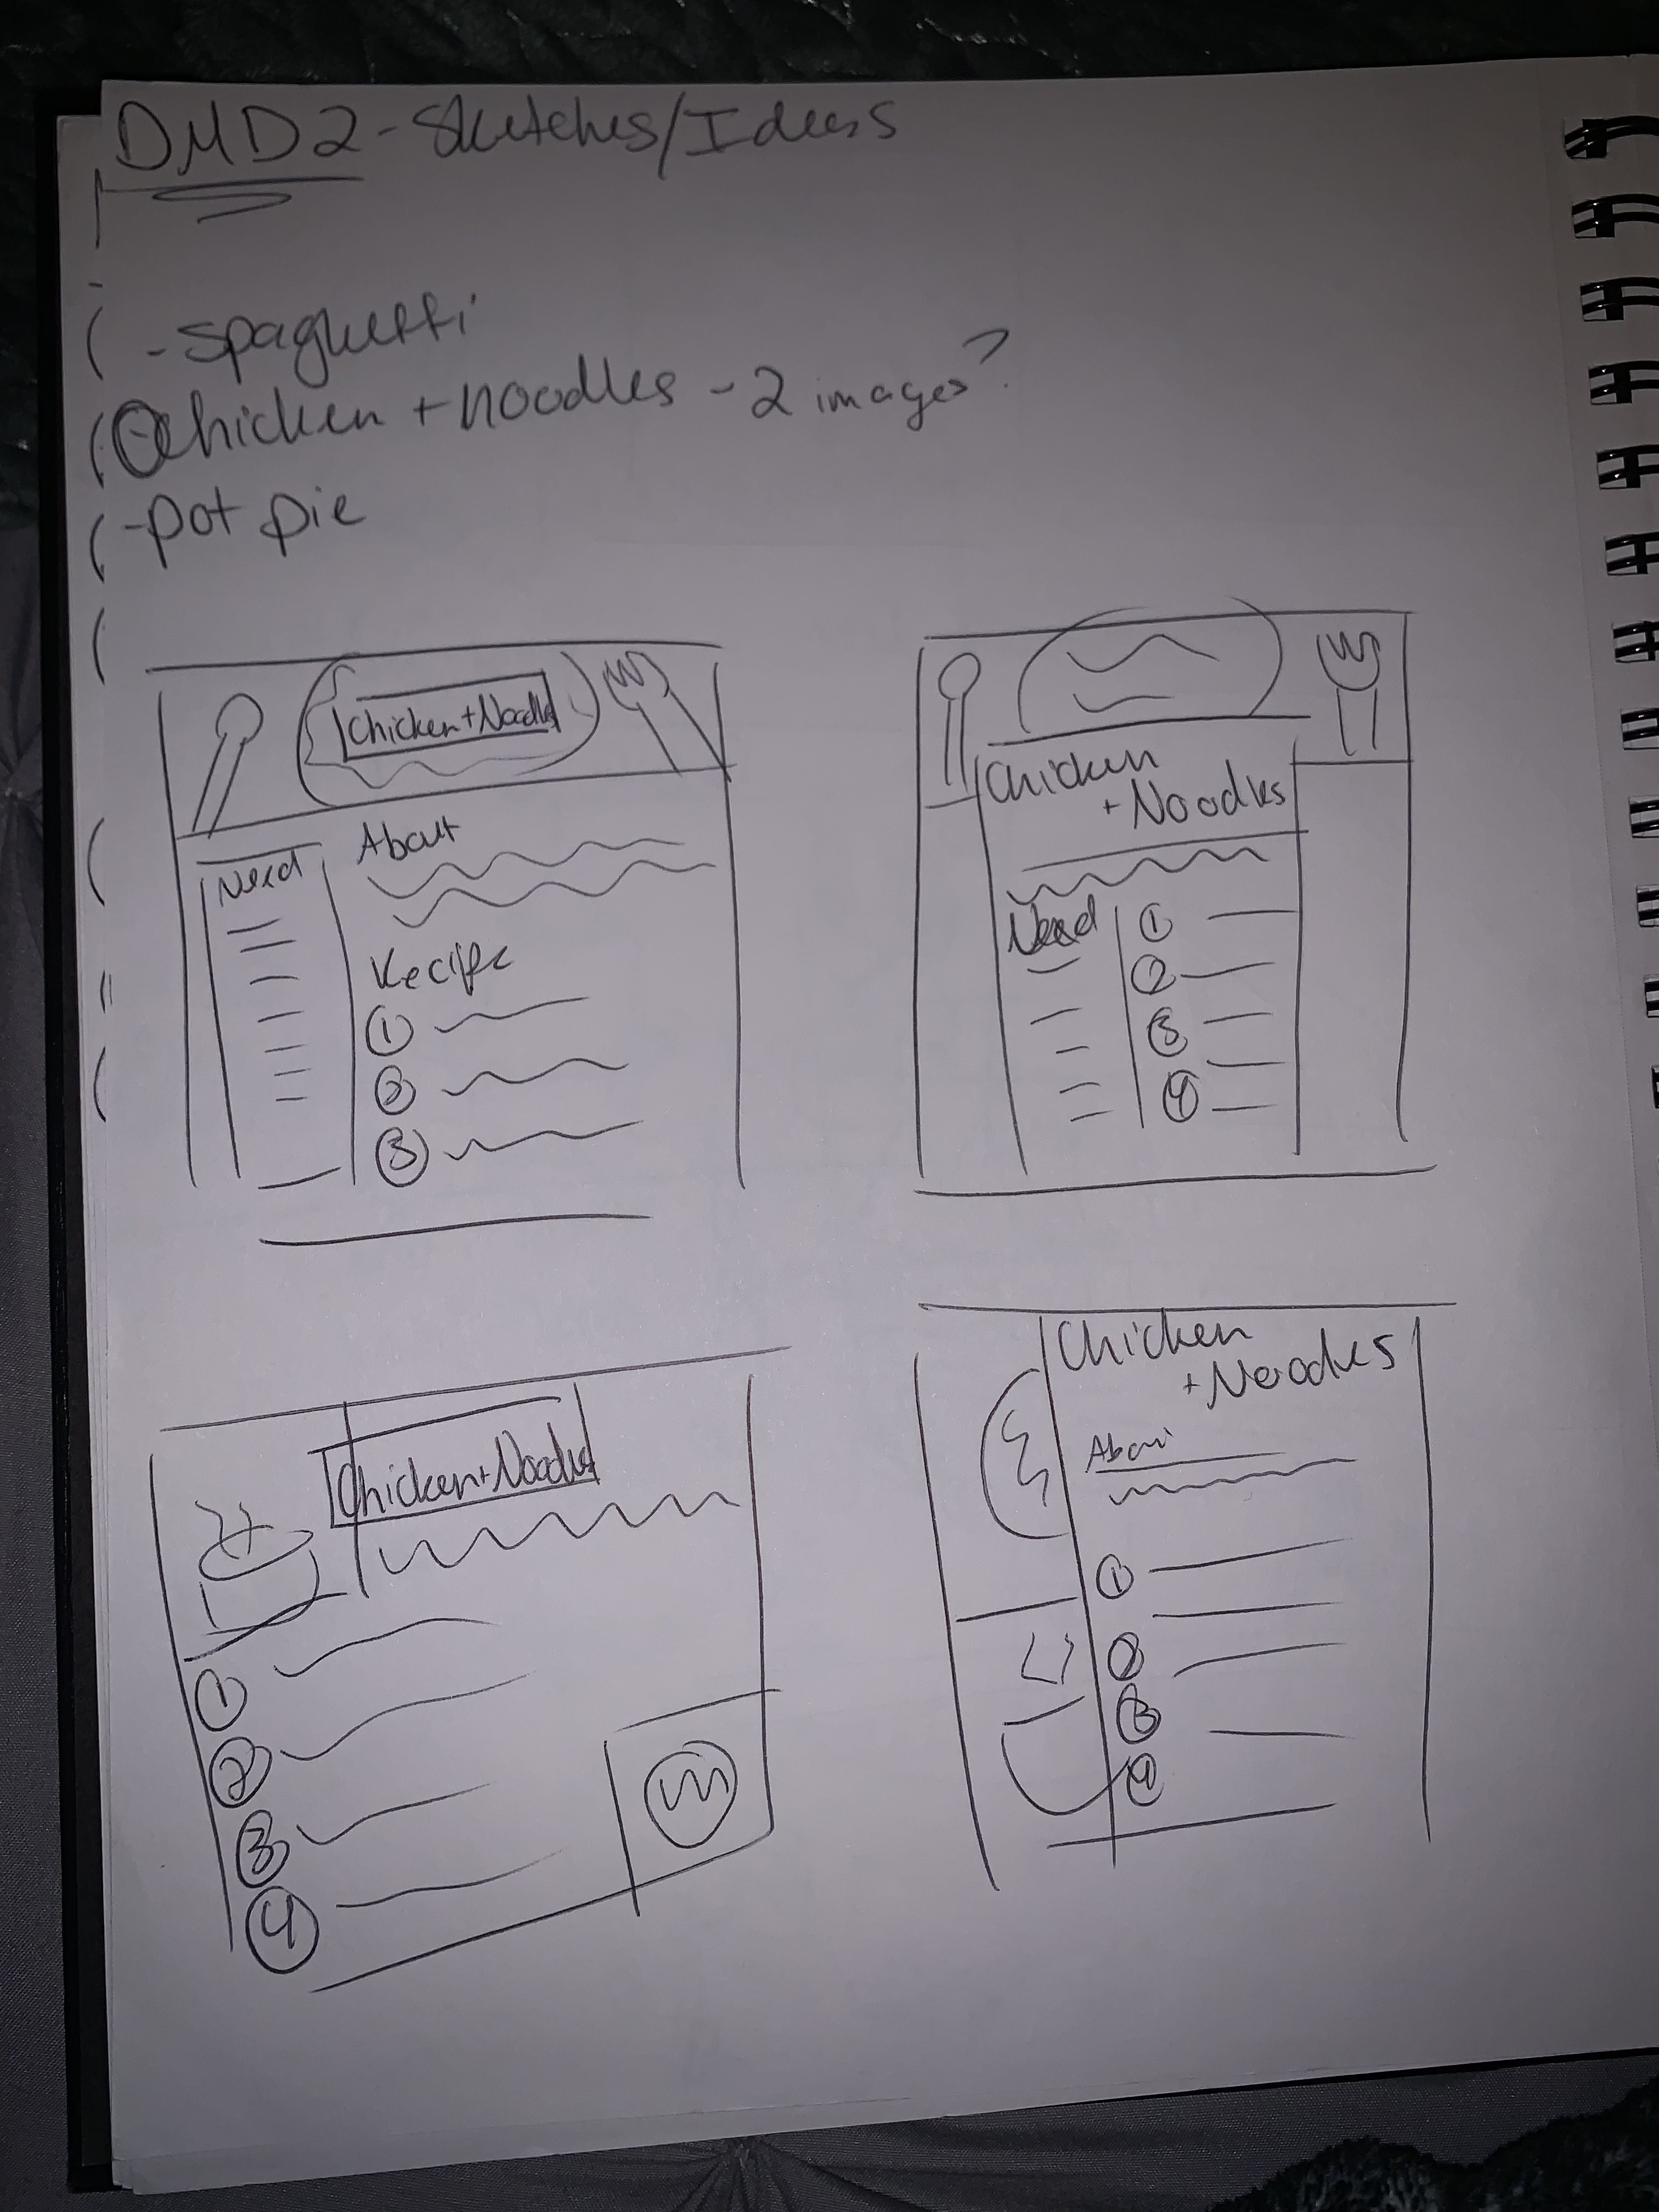 DMD2 - Sketches/Ideas
- spaghetti
- chicken + noodles - 2 images?
- pot pie
Chicken + Noodles
Need
About
Recipe
1
2
3
Chicken
+ Noodles
Need
1
2
3
4
Chicken + Noodles
1
2
3
4
Chicken
+ Noodles
About
1
2
3
4